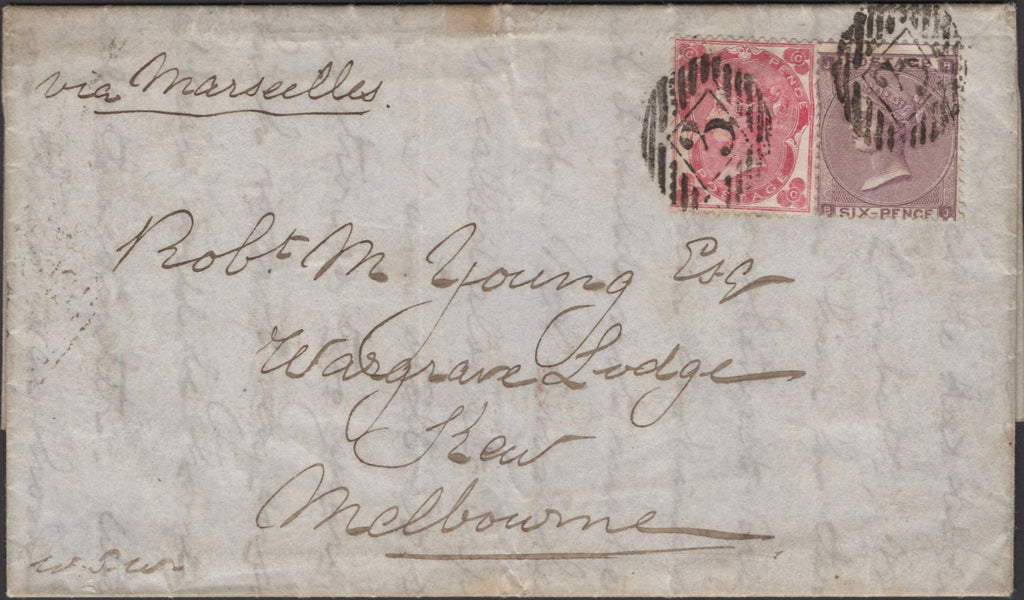 via Marseilles.
PENCE
POSTAGE
3
SIX-PENCE
3
Robt. M. Young Esq
Wargrave Lodge
Kew
Melbourne